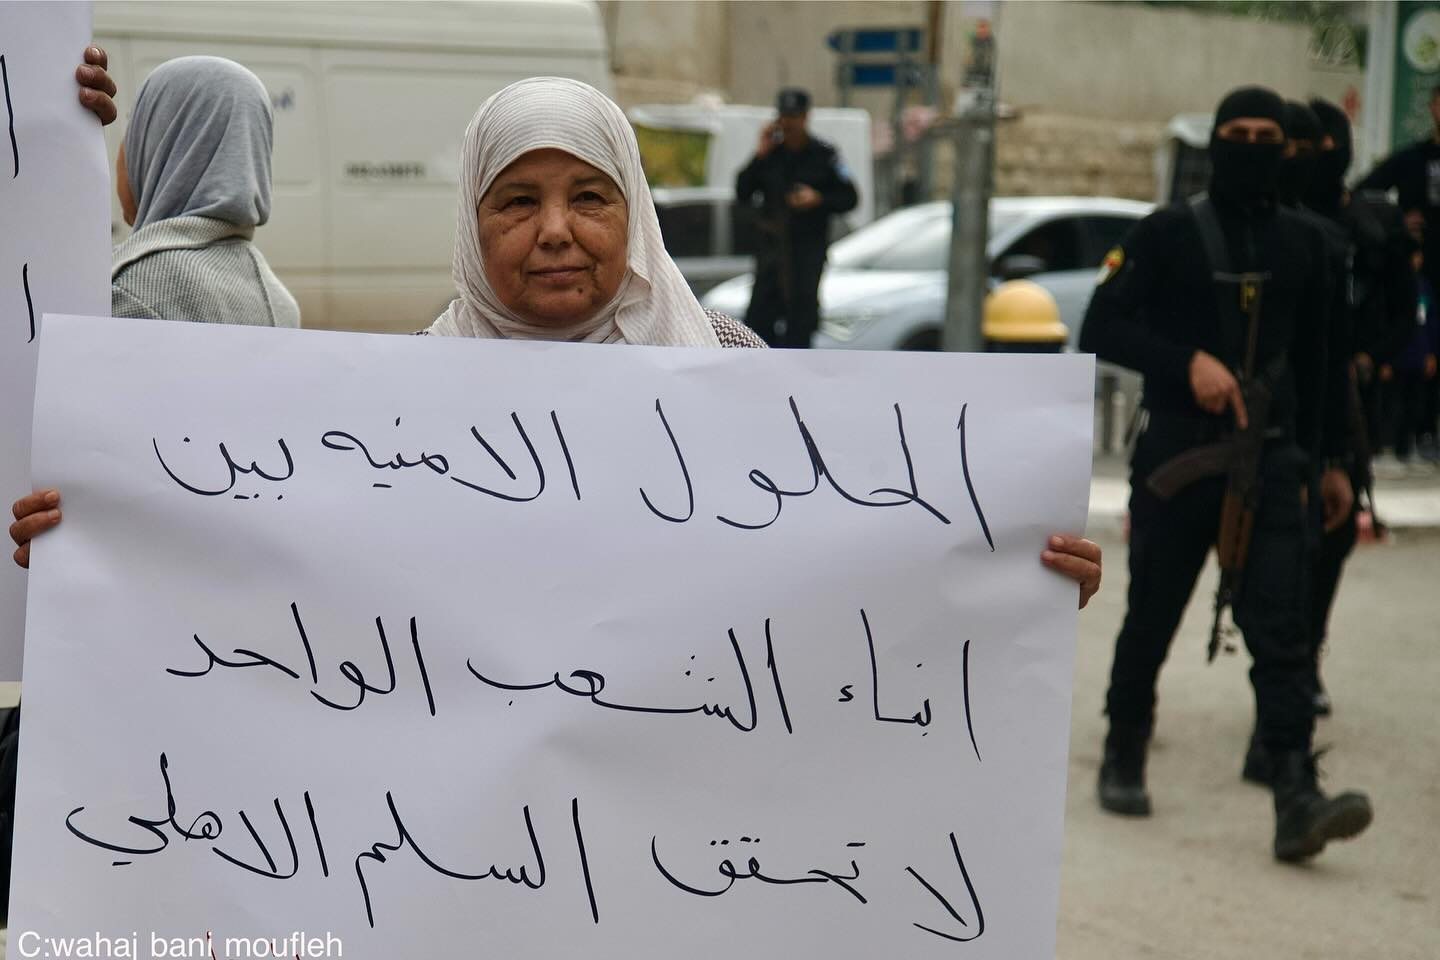 الحلول الامنيه بين
ابناء الشعب الواحد
لا تحقق السلم الاهلي
C:wahaj bani moufleh